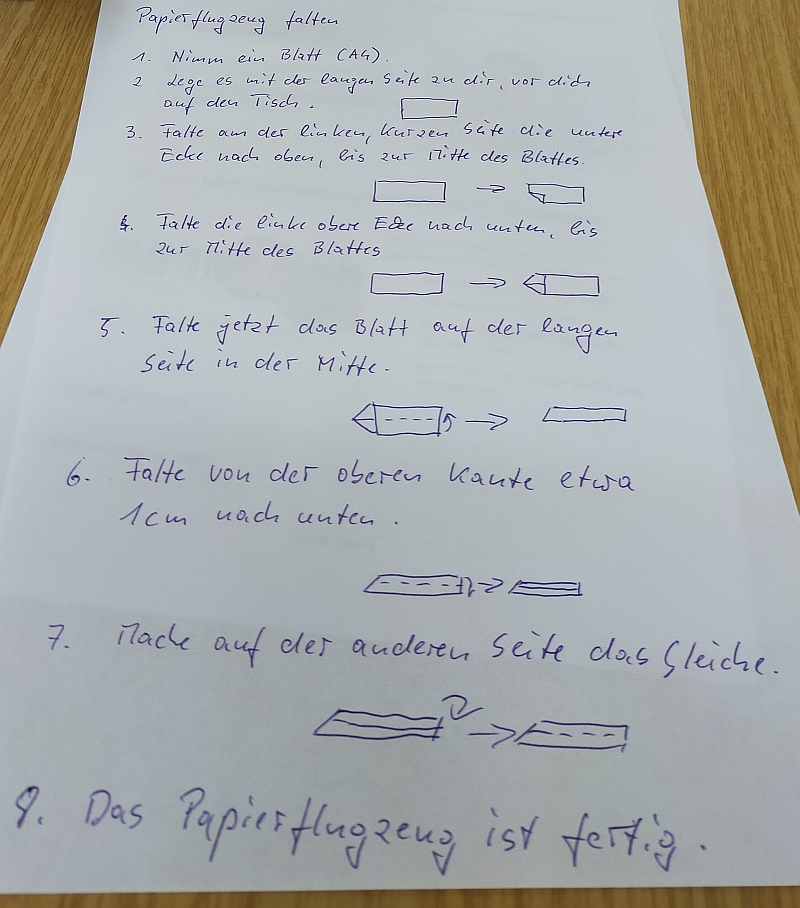 Papierflugzeug falten
1. Nimm ein Blatt (A4).
2 Lege es mit der langen Seite zu dir, vor dich
auf den Tisch.
3. Falte an der linken, kurzen Seite die untere
Ecke nach oben, bis zur Mitte des Blattes.
4. Falte die linke obere Ecke nach unten, bis
zur Mitte des Blattes
5. Falte jetzt das Blatt auf der langen
Seite in der Mitte.
6. Falte von der oberen Kante etwa
1cm nach unten.
7. Mache auf der anderen Seite das Gleiche.
8. Das Papierflugzeug ist fertig.